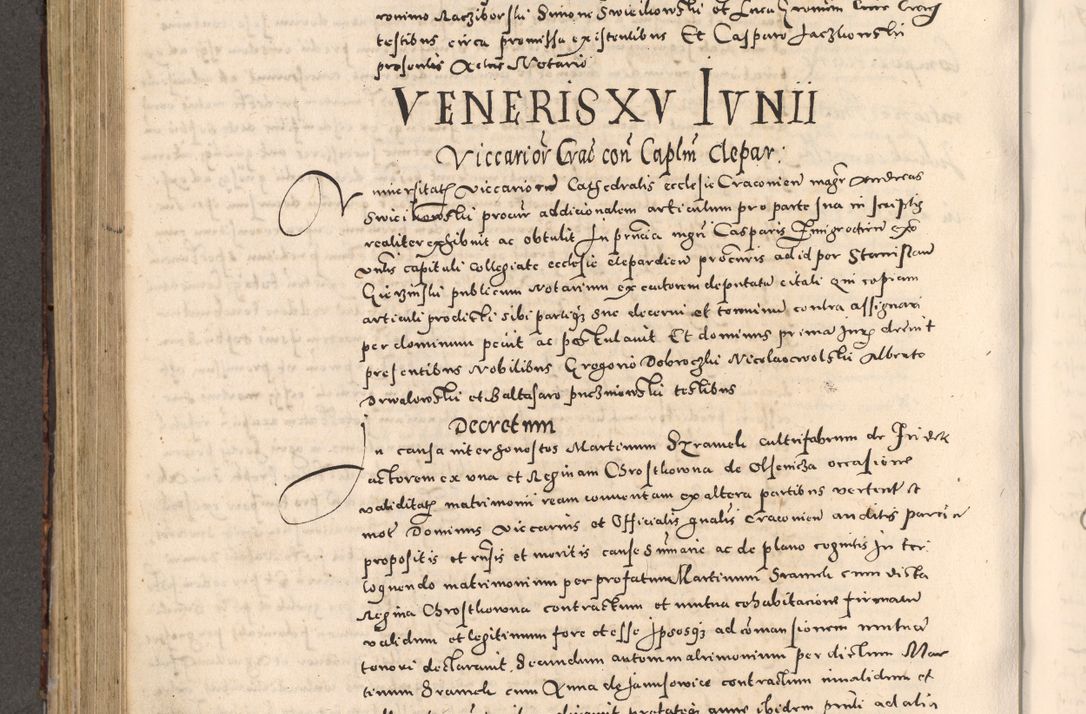 ronimo Racziborski Simone Swieikowski et Luca
testibus circa promissa existentibus Et Casparo Jaczkowski
presentis Actus Notario
VENERIS XV IVNII
Viccarior Crac con Caplm Clepar:
Vniuersitatis viccariorum Cathedralis ecclesie Craconien magr Andreas
Swieikowski procur addicionalem articulum pro parte sua in scriptis
realiter exhibuit ac obtulit In pñcia mgri Casparis
vnus capituli Collegiate ecclesie Clepardien procuris ad id per Stanislaum
publicum Notarium executorem deputatum citati qui copiam
articuli predicti sibi partiq3 sue decerni et terminum contra assignari
per dominum petiit ac postulauit Et dominus prima Jurp decreuit
presentibus Nobilibus Gregorio Dobroczki Nicolao wolski Alberto
Drwalowski et Baltasaro puczniowski testibus
Decretum
In causa inter honestos Martinum Szramek cultrifabrum de
actorem ex vna et Reginam Chrosthowna de Olsenicza occasione
validitatis matrimonii ream conuentam ex altera partibus vertent et
mot Dominus viccarius et Officialis gnalis Craconien auditis partium
propositis et rñsis et meritis cause sumarie ac de plano cognitis In ter
loquendo matrimonium per prefatum Martinum Sramek cum dicta
Regina Chrosthowna contractum et mutua cohabitacione firmatum
validum et legitimum fore et esse Ipsosq3 ad comansionem mutuam
teneri declarauit Secundum autem matrimonium per dictum Mar
tinum Sramek cum Anna de Janusowice contractum inualidum et
pretatem anne ibidem pñti ad alia